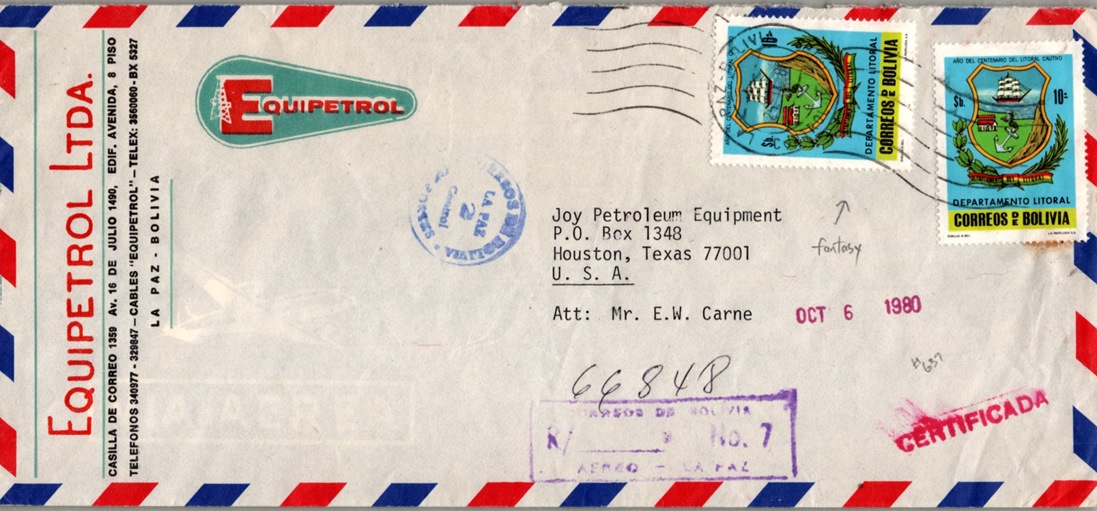 EQUIPETROL LTDA.
CASILLA DE CORREO 1359 Av. 16 DE JULIO 1490, EDIF. AVENIDA, 8 PISO
TELEFONOS 340977 - 329847 - CABLES "EQUIPETROL" - TELEX: 3560060 - BX 5327
LA PAZ - BOLIVIA
EQUIPETROL
LA PAZ
2
Control
BOLIVIA
DEPARTAMENTO LITORAL
CORREOS DE BOLIVIA
AÑO DEL CENTENARIO DEL LITORAL CAUTIVO
$b. 10
DEPARTAMENTO DEL LITORAL
DEPARTAMENTO LITORAL
CORREOS DE BOLIVIA
Joy Petroleum Equipment
P.O. Box 1348
Houston, Texas 77001
U. S. A.
Att: Mr. E.W. Carne
fantasy
OCT 6 1980
#637
66848
CORREOS DE BOLIVIA
R/ No. 7
AEREO - LA PAZ
CERTIFICADA